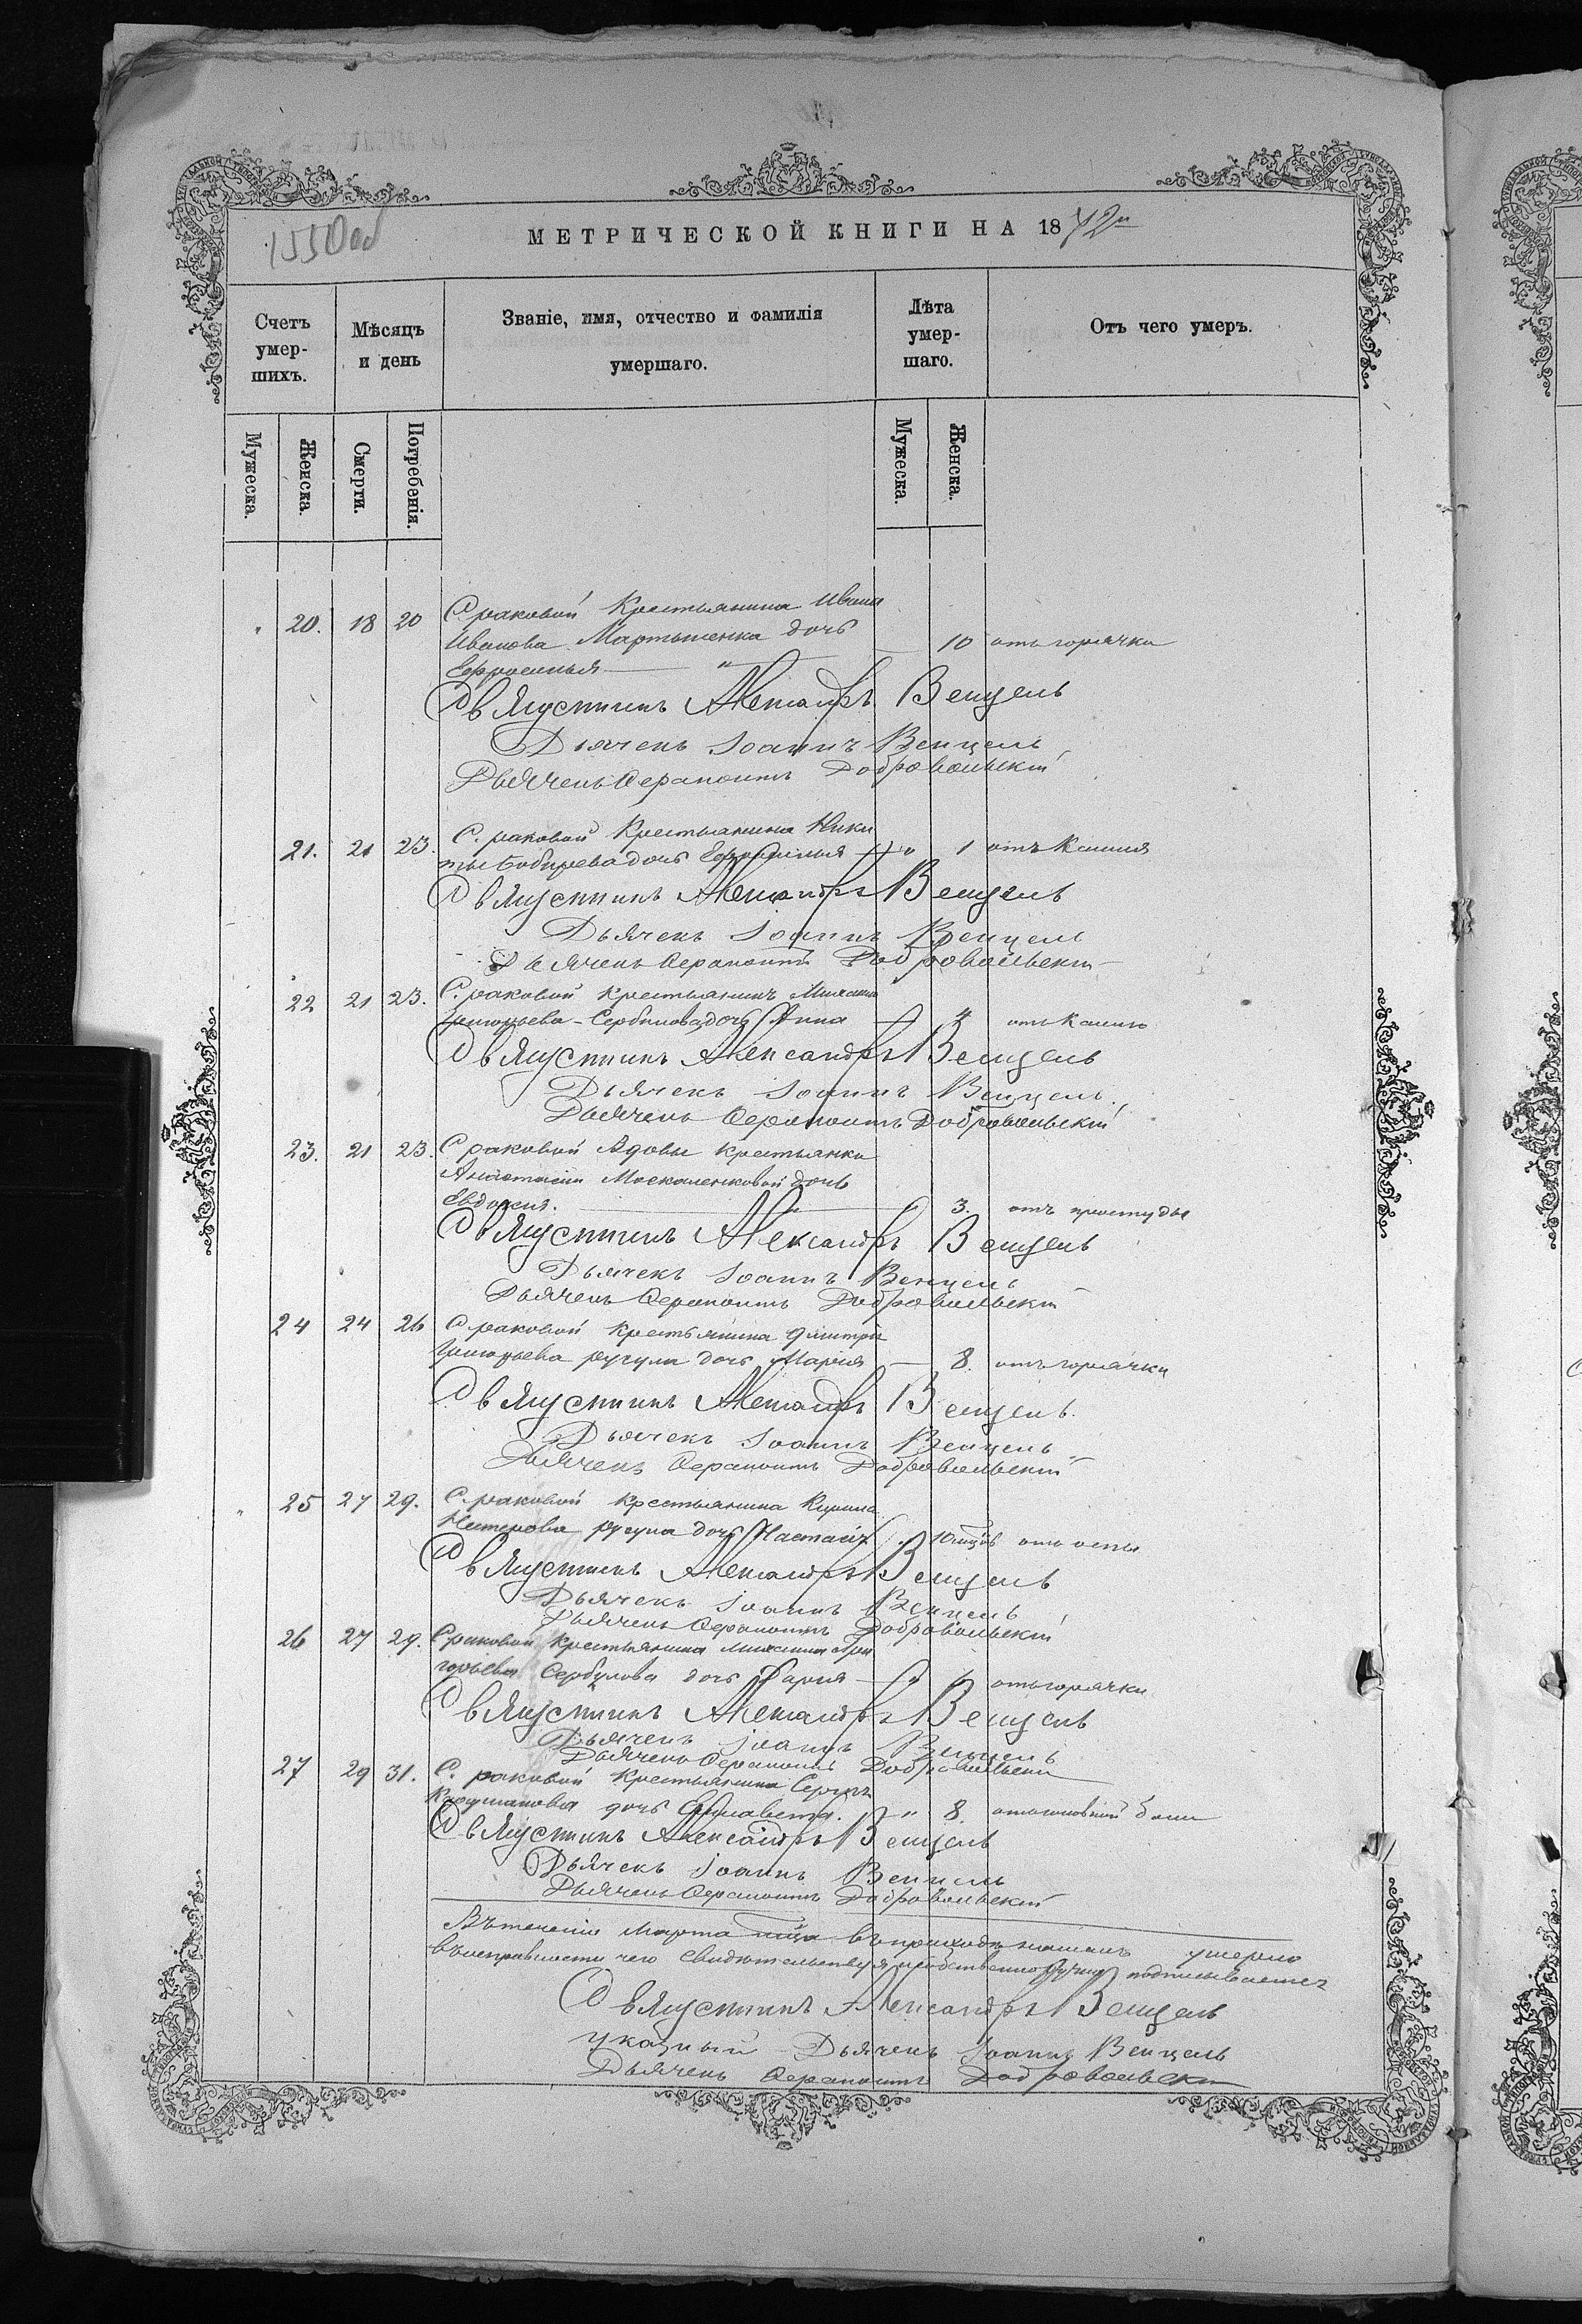 1550 об
МЕТРИЧЕСКОЙ КНИГИ НА 1872й
Счетъ умер-шихъ.
Мѣсяцъ и день
Званіе, имя, отчество и фамилія умершаго.
Лѣта умер-шаго.
Отъ чего умеръ.
Мужеска.
Женска.
Смерти.
Погребенія.
Мужеска.
Женска.
20. 18 20 С раковой Крестьянина Ивана
Иванова Мартыненка дочь 10 отъ горячки
Ефросинья
Священникъ Александръ Венцель
Дьячекъ Іоаннъ Венцель
Дьячекъ Ферапонтъ Добровольскій
21. 21 23. С. раковой Крестьянина Ники
ты Бобырева дочь Ефросинья 1 отъ Кашля
Священникъ Александръ Венцель
Дьячекъ Іоаннъ Венцель
Дьячекъ Ферапонтъ Добровольскій
22 21 23. С. раковой крестьянинъ
Григорьева Сербулова дочь Анна 4 отъ Кашлю
Священникъ Александръ Венцель
Дьячекъ Іоаннъ Венцель
Дьячекъ Ферапонтъ Добровольскій
23. 21 23. С раковой вдовы крестьянки
Анастасіи Москаленковой дочь
Евдокія. 3. отъ простуды
Священникъ Александръ Венцель
Дьячекъ Іоаннъ Венцель
Дьячекъ Ферапонтъ Добровольскій
24 24 26 С раковой Крестьянина Дмитрія
Григорьева дочь Марія 8. отъ горячки
Священникъ Александръ Венцель
Дьячекъ Іоаннъ Венцель
Дьячекъ Ферапонтъ Добровольскій
25 27 29. С. раковой крестьянина Кирила
Нестерова дочь Настасія 10 отъ оспы
Священникъ Александръ Венцель
Дьячекъ Іоаннъ Венцель
Дьячекъ Ферапонтъ Добровольскій
26 27 29. С раковой Крестьянина Гри
горьева Сербулова дочь Марія отъ горячки
Священникъ Александръ Венцель
Дьячекъ Іоаннъ Венцель
Дьячекъ Ферапонтъ Добровольскій
27 29 31. С. раковой Крестьянина Сергѣя
дочь Елисавета. 8. отъ головной боли
Священникъ Александръ Венцель
Дьячекъ Іоаннъ Венцель
Дьячекъ Ферапонтъ Добровольскій
Въ теченіи Марта въ приходѣ нашемъ умерло
въ исправности чего подписываемся
Священникъ Александръ Венцель
указный Дьячекъ Іоаннъ Венцель
Дьячекъ Ферапонтъ Добровольскій